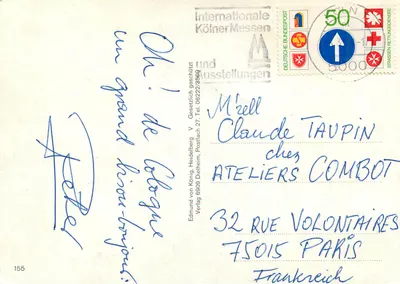 Oh! de Cologne
un grand bisou-bonjour!
Peter
155
Edmund von König, Heidelberg V Gesetzlich geschützt
Verlag 6908 Dielheim, Postfach 27. Tel. 06222/
Internationale
Kölner Messen
und
Ausstellungen
5000
50
DEUTSCHE BUNDESPOST
M'zell
Claude TAUPIN
chez
ATELIERS COMBOT
32 RUE VOLONTAIRES
75015 PARIS
Frankreich